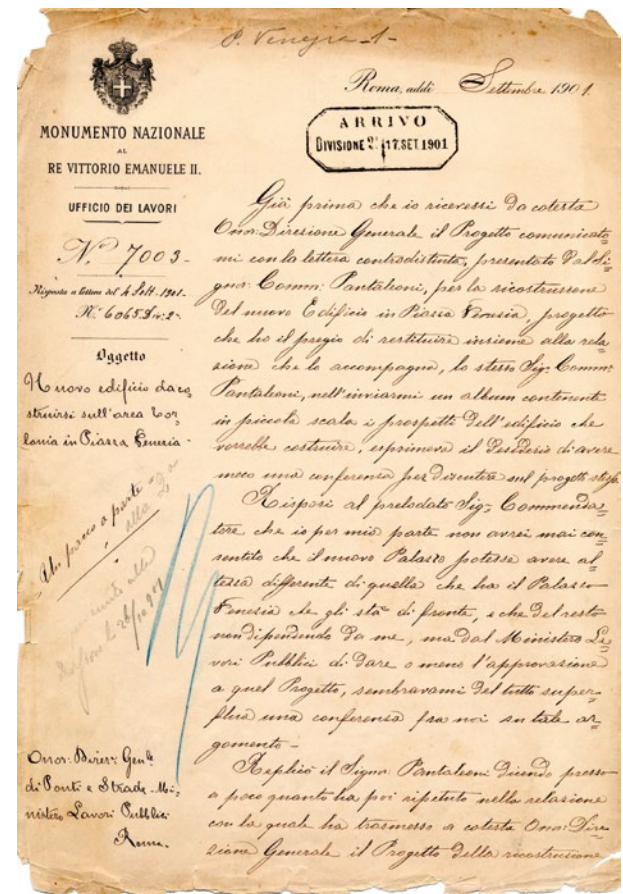 P. Venezia -1-
Roma, addì Settembre 1901.
ARRIVO
DIVISIONE 2ª 17.SET.1901
MONUMENTO NAZIONALE
AL
RE VITTORIO EMANUELE II.
UFFICIO DEI LAVORI
N. 7003-
Risposta a lettera del 4 Sett. 1901-
N. 6065. Div: 2ª
Oggetto
Nuovo edificio da co
struirsi sull'area Tor
lonia in Piazza Venezia-
Un pacco a parte
alla
unito alla
Onor: Direz: Gen.le
di Ponti e Strade - Mi=
nistero Lavori Pubblici
Roma.
Già prima che io ricevessi da cotesta
Onor: Direzione Generale il Progetto comunicato=
mi con la lettera controdistinta, presentato dal Si=
gnor Comm: Pantaleoni, per la ricostruzione
del nuovo Edificio in Piazza Venezia, progetto
che ho il pregio di restituire insieme alla rela=
zione che lo accompagna, lo stesso Sig: Comm:
Pantaleoni, nell'inviarmi un album contenente
in piccola scala i prospetti dell'edificio che
vorrebbe costruire, esprimeva il desiderio di avere
meco una conferenza per discutere sul progetto stesso.
Risposi al prelodato Sig: Commenda=
tore che io per mia parte non avrei mai con=
sentito che il nuovo Palazzo potesse avere al=
tezza differente di quella che ha il Palazzo
Venezia che gli sta di fronte, e che del resto
non dipendendo da me, ma dal Ministero La=
vori Pubblici di dare o meno l'approvazione
a quel Progetto, sembravami del tutto super=
flua una conferenza fra noi su tale ar=
gomento -
Replicò il Signor Pantaleoni dicendo presso
a poco quanto ha poi ripetuto nella relazione
con la quale ha trasmesso a cotesta Onor: Dire=
zione Generale il Progetto della ricostruzione